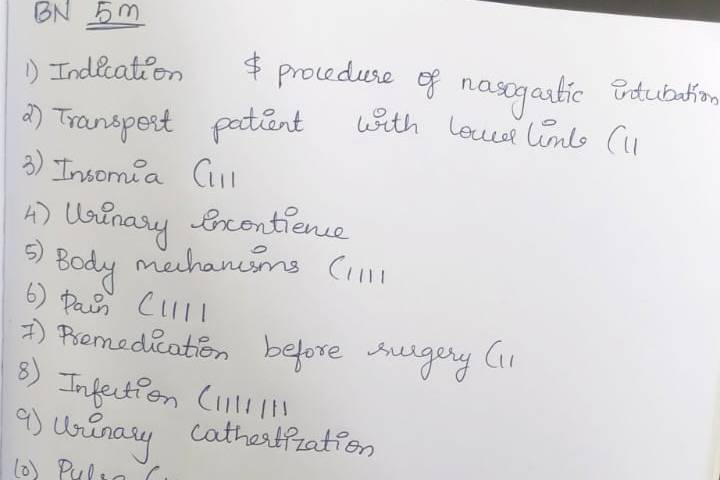 BN 5m
1) Indication $ procedure of nasogastic intubation
2) Transport patient with lower limb (11
3) Insomia (111
4) Urinary incontience
5) Body mechanisms (1111
6) Pain (1111
7) Premedication before surgery (11
8) Infection (1111111
9) Urinary cathertization
10) Pulse